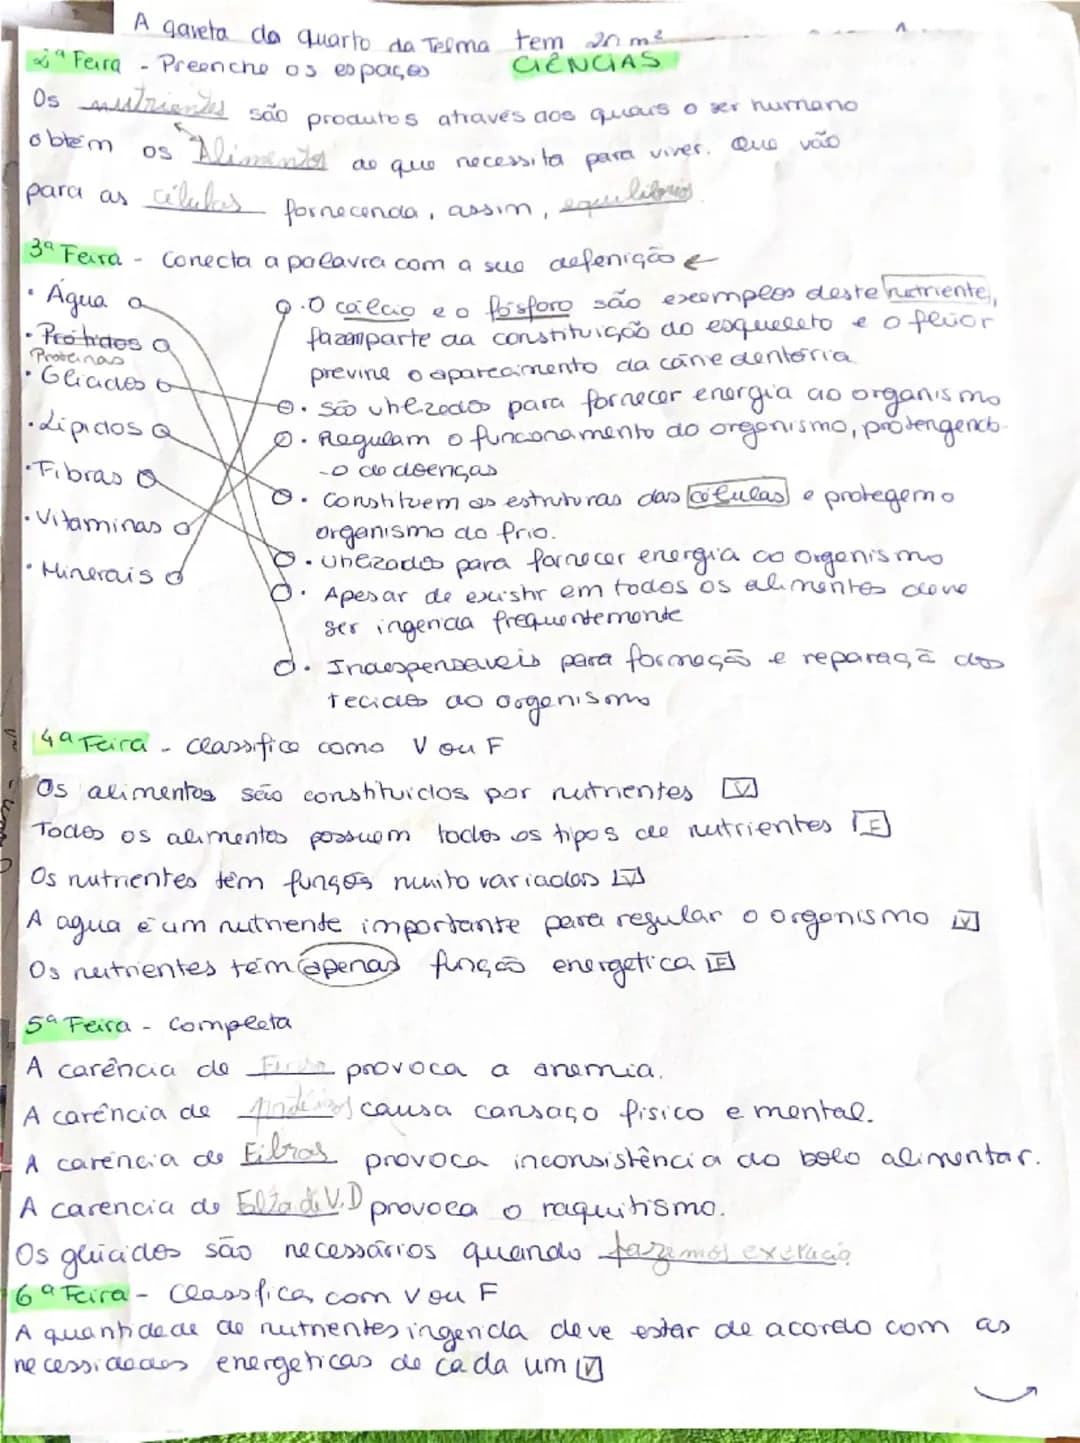 A gaveta do quarto da Telma tem 20 m²
2ª Feira - Preenche os espaços CIÊNCIAS
Os nutrientes são produtos através dos quais o ser humano
obtém os Alimentos de que necessita para viver. Que vão
para as células fornecendo, assim, equilibrios.
3ª Feira - Conecta a palavra com a sua defenição
• Água
• Prótidos
Proteinas
• Glicidos
• Lipidos
• Fibras
• Vitaminas
• Minerais
• O cálcio e o fósforo são exemplos deste nutriente,
fazem parte da constituição do esqueleto e o flúor
previne o aparecimento da cárie dentária
• São utilizados para fornecer energia ao organismo
• Regulam o funcionamento do organismo, protengendo-
-o de doenças
• Constituem as estruturas das células e protegem o
organismo do frio.
• Utilizados para fornecer energia ao organismo
• Apesar de existir em todos os alimentos deve
ser ingerida frequentemente
• Indespensaveis para formação e reparaçã dos
tecidos do organismo
4ª Feira - Classifica como V ou F
Os alimentos são constituidos por nutrientes V
Todos os alimentos possuem todos os tipos de nutrientes F
Os nutrientes têm funções muito variadas V
A agua é um nutriente importante para regular o organismo V
Os nutrientes têm apenas função energetica F
5ª Feira - Completa
A carência de provoca a anemia.
A carência de causa cansaço fisico e mental.
A carência de Fibras provoca inconsistência do bolo alimentar.
A carencia de Falta de V.D provoca o raquitismo.
Os glicidos são necessários quando fazemos exercicio
6ª Feira - Classifica com V ou F
A quantidade de nutrientes ingerida deve estar de acordo com as
necessidades energeticas de cada um V